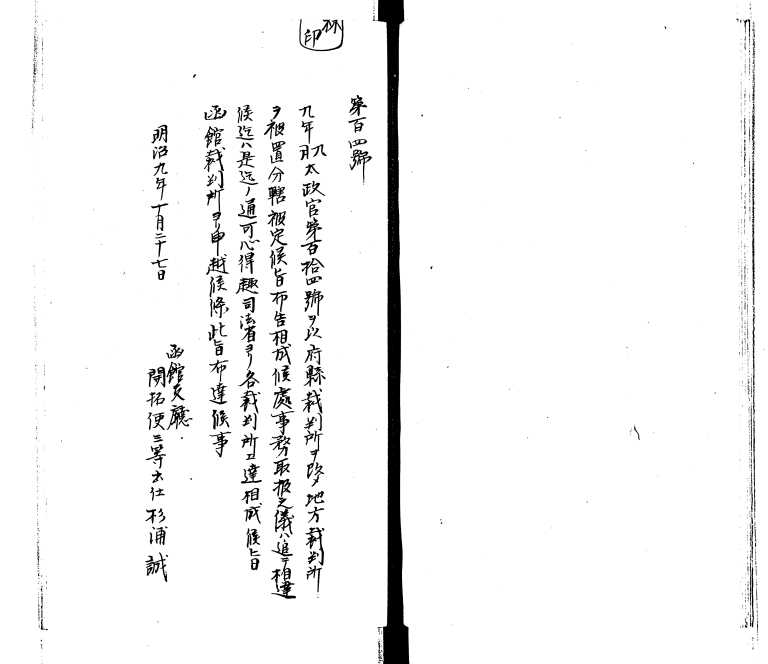 第百四號
九年九月太政官第百拾四號ヲ以府縣裁判所ヲ改メ地方裁判所
ヲ被置分轄被定候旨布告相成候處事務取扱之儀ハ追テ相達
候迄ハ是迄ノ通可心得趣司法省ヨリ各裁判所エ達相成候旨
函館裁判所ヨリ申越候條此旨布達候事
明治九年十月二十七日
函館支廳
開拓使三等出仕杉浦誠
印